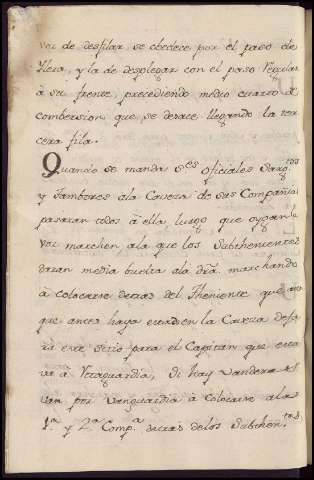 voz de desfilar se obedece por el paso de
Ilera, y la de desplegar con el paso Regular
à su frente, precediendo medio cuarto de
combersion que se desace llegando la ter
cera fila.
Quando se manda S.es oficiales Sarg.tos
y Tambores ala Caveza de sus Compañias
pasaran todos à ella luego que oygan la
voz marchen ala que los Subthenientes
daran media buelta ala dra. marchando
à colocarse detras del Theniente que aun
que antes haya estado en la Caveza dejá
rà este sitio para el Capitan que esta
va à Retaguardia, Si hay vandera se
van por vanguardia à colocarse alas
1.a y 2.a Comp.a detras delos Subthen.tes